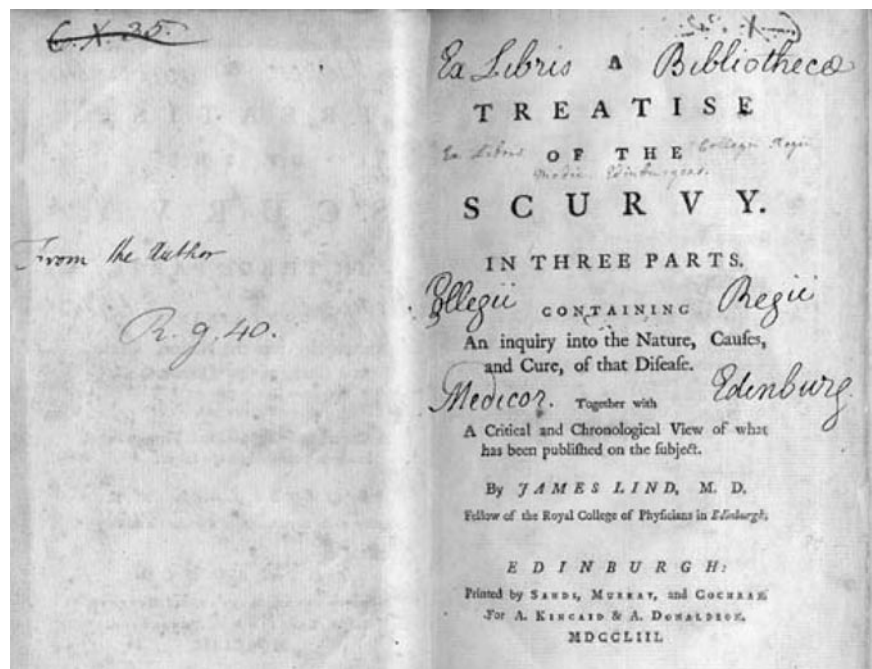 C. X. 35.
From the Author
R. g. 40.
Ex Libris A Bibliothecæ
TREATISE
Ex Libris OF THE Collegii Regii
Medic. Edinburgens.
SCURVY.
IN THREE PARTS.
Collegii CONTAINING Regii
An inquiry into the Nature, Cauſes,
and Cure, of that Diſeaſe.
Medicor. Together with Edinburg.
A Critical and Chronological View of what
has been publiſhed on the ſubject.
By JAMES LIND, M. D.
Fellow of the Royal College of Phyſicians in Edinburgh.
EDINBURGH:
Printed by SANDS, MURRAY, and COCHRAN.
For A. KINCAID & A. DONALDSON.
MDCCLIII.